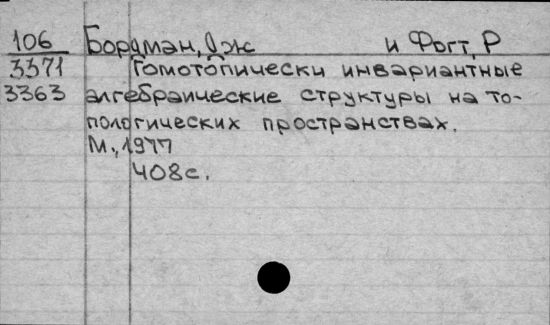 106 Бордман, Дж и Фогт, Р
3371 Гомотопически инвариантные
3363 алгебраические структуры на то-
пологических пространствах.
М., 1977
408с.